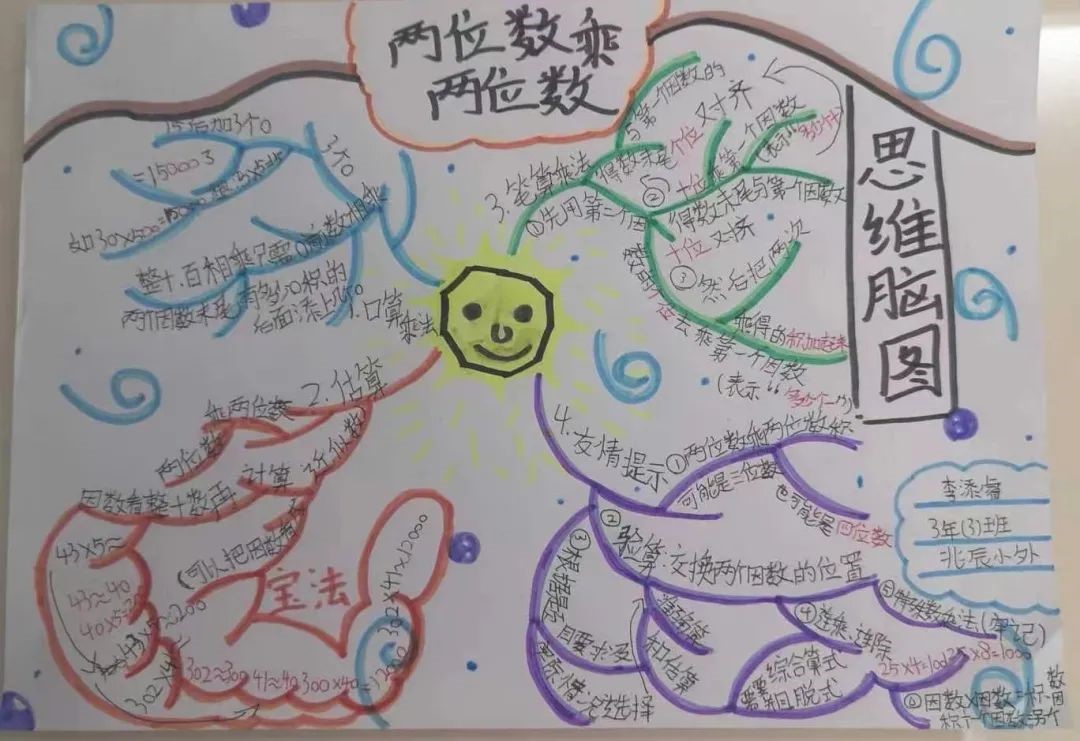 两位数乘
两位数
思维脑图
1.口算
乘法
整十、百相乘只需
两个因数末尾有多少0积的
后面添上几个0
如30×500=15000
=15000
3个0
后加3个0
2.估算
两位数
乘两位数
计算
近似数
因数看整十数再
可以把因数
宝法
43×5≈
43≈40
40×5=200
43×5≈200
302×41
302≈300 41≈40 300×40=12000
302×41≈12000
3.笔算乘法
①先用第二个因
数的
个位
去乘第一个因数
(表示"多少个一")
得数末尾
与第一个因数的
个位对齐
②十位乘第一个因数
(表示
得数末尾与第一个因数
十位对齐
③然后把两次
乘得的积加起来
4.友情提示
①两位数乘两位数积
可能是三位数
也可能是四位数
②验算:交换两个因数的位置
③根据题
目要求与
实际情况选择
和估算
④连乘、连除
综合算式
脱式
⑤特殊数乘法(牢记)
25×4=100
25×8=1000
⑥因数×因数=积
积÷一个因数=另
3年(3)班
北辰小外